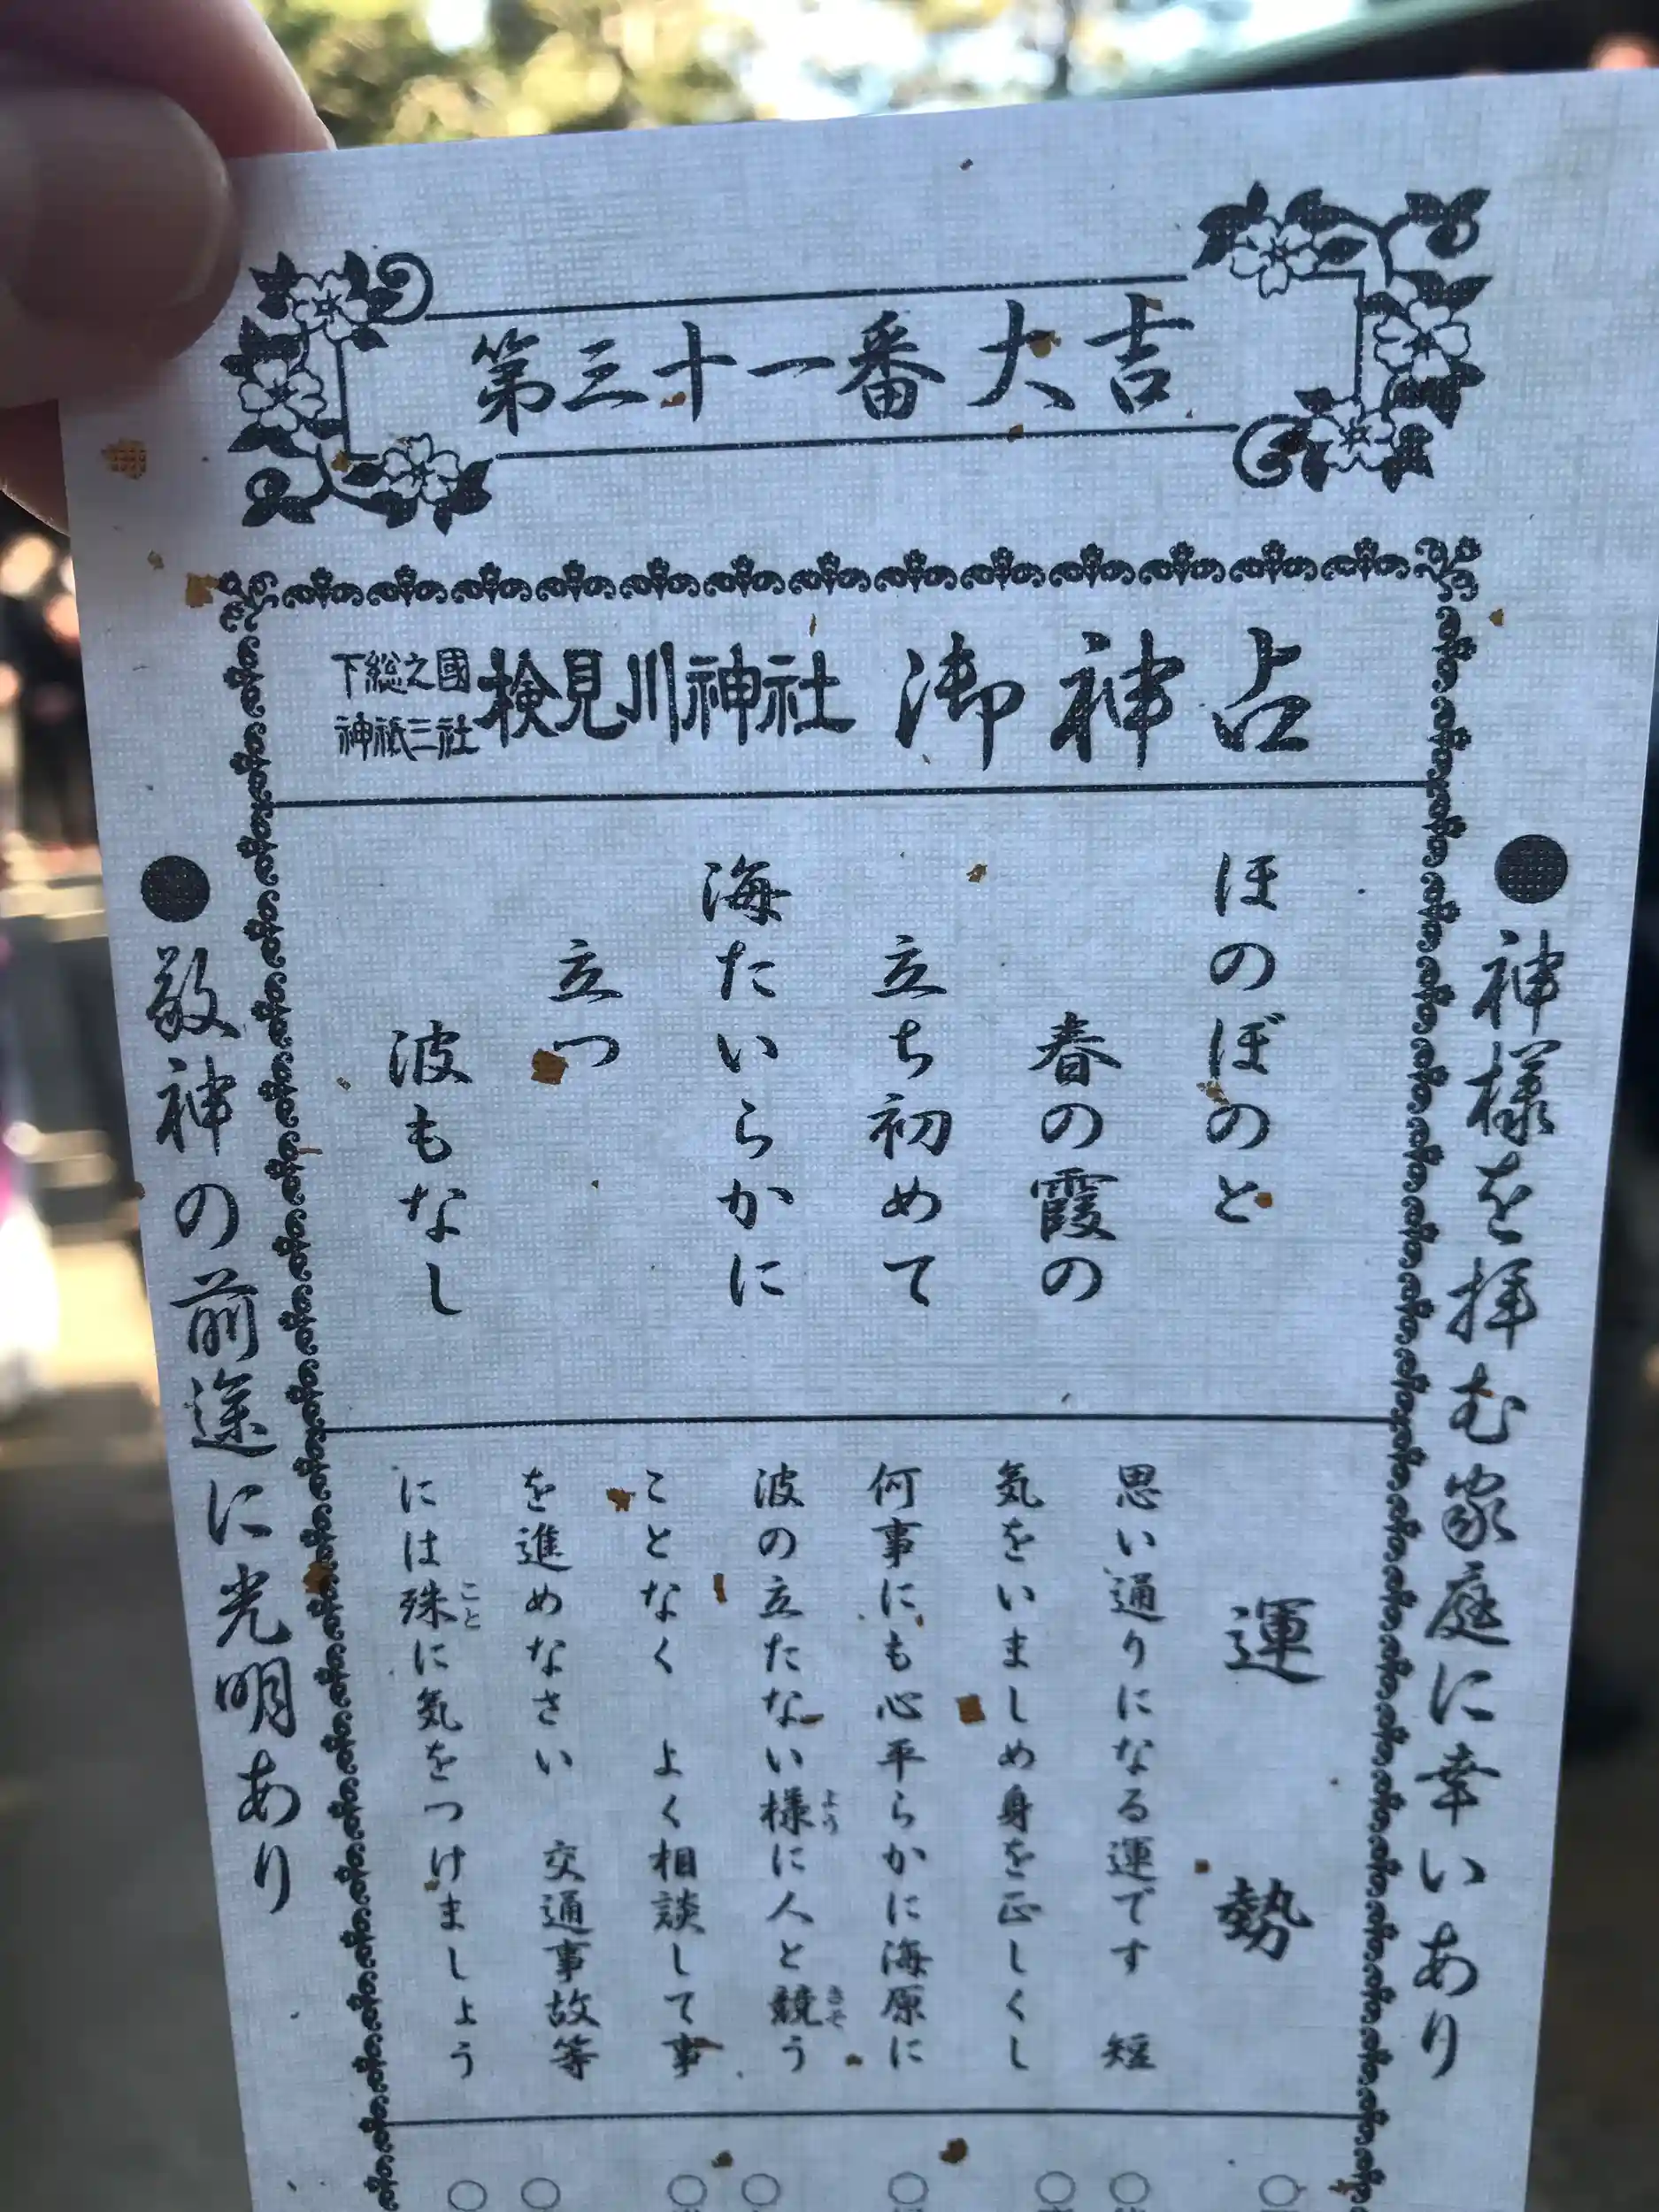 第三十一番 大吉
下総之國
神祇三社
検見川神社 御神占
●神様を拝む家庭に幸いあり
ほのぼのと
春の霞の
立ち初めて
海たいらかに
立つ
波もなし
運勢
思い通りになる運です 短
気をいましめ身を正しくし
何事にも心平らかに海原に
波の立たない様に人と競う
よう
きそ
ことなく よく相談して事
を進めなさい 交通事故等
には殊に気をつけましょう
こと
●敬神の前途に光明あり